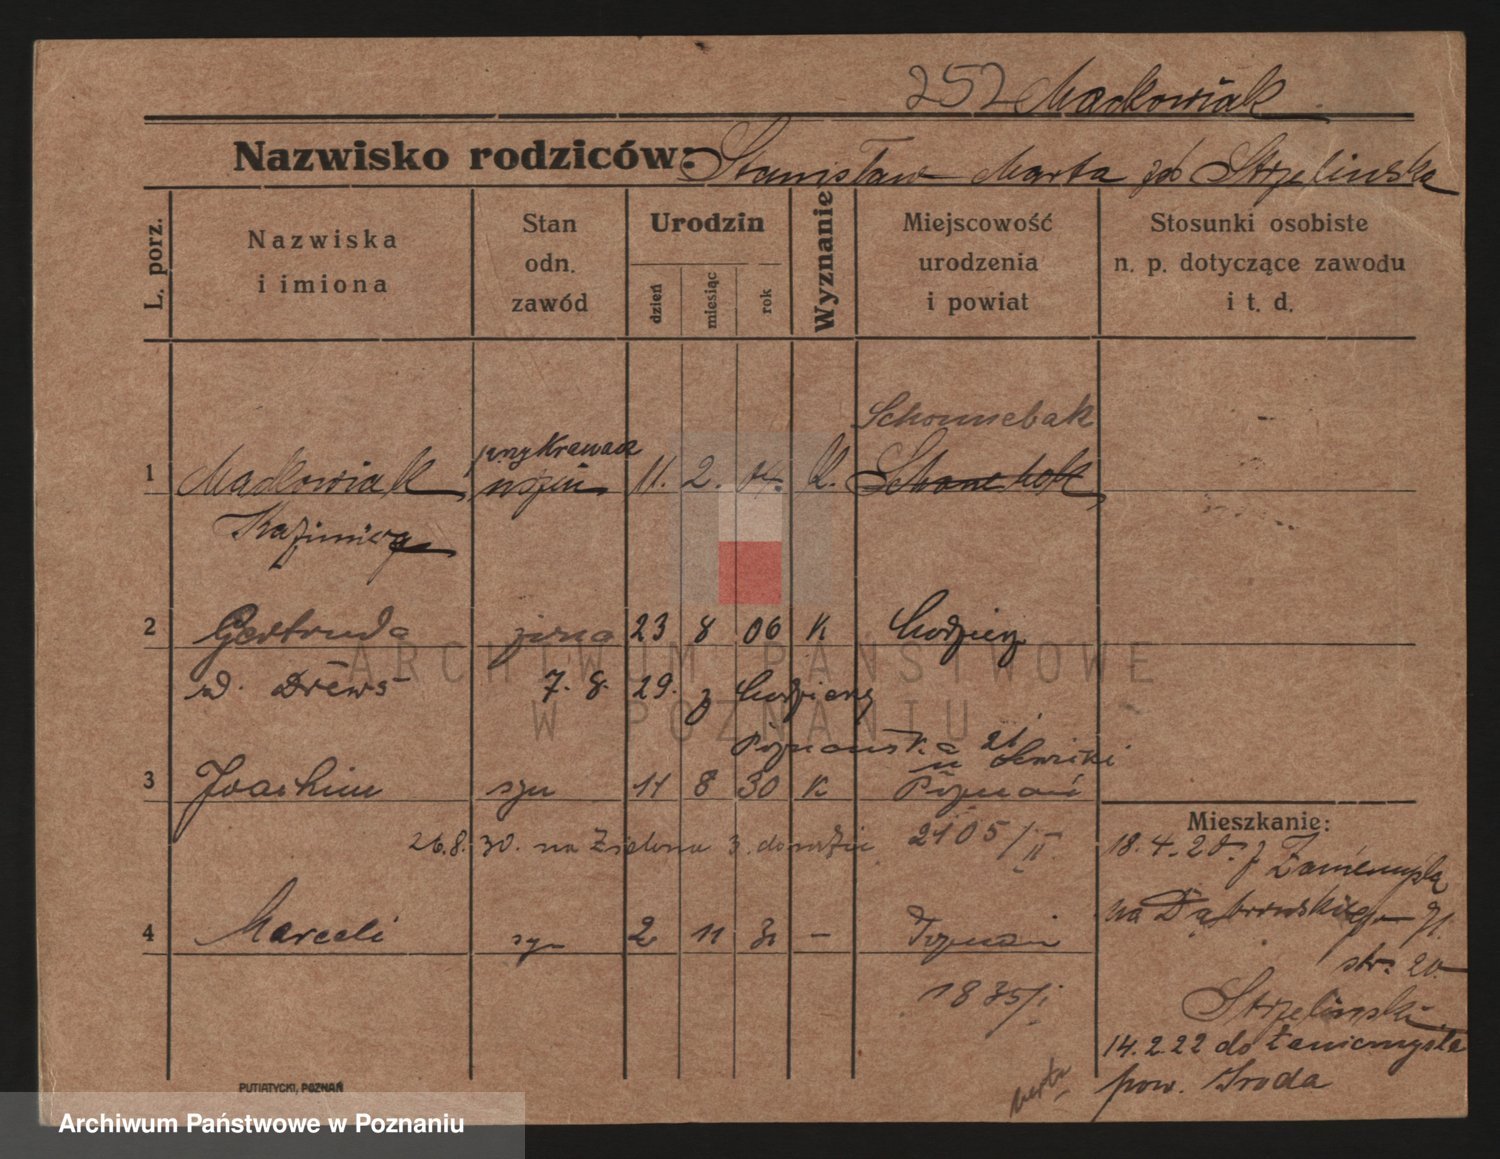 252 Maćkowiak
Nazwisko rodziców: Stanisław Marta Strzelinska
L. porz.
Nazwiska
i imiona
Stan
odn.
zawód
Urodzin
dzień
miesiąc
rok
Wyznanie
Miejscowość
urodzenia
i powiat
Stosunki osobiste
n. p. dotyczące zawodu
i t. d.
Schonnebak
1 Maćkowiak 11. 2. 04. K.
Kazimierz
2 Gertruda żona 23 8 06 K Chodzież
Drews 7. 8. 29. z
Poznańska 21
3 Joachim syn 11 8 30 K Poznań
26.8.30. na Zielona 3. 2105/II
Mieszkanie:
18.4.21. z Zaniemyśla
na Dąbrowskiego 91.
4 Marceli syn 2 11 30 - Poznań
str. 20
1835/I
Strzelinski
14.2.22 do Zaniemyśla
pow. Sroda
PUTIATYCKI, POZNAŃ
ARCHIWUM PAŃSTWOWE
W POZNANIU
Archiwum Państwowe w Poznaniu